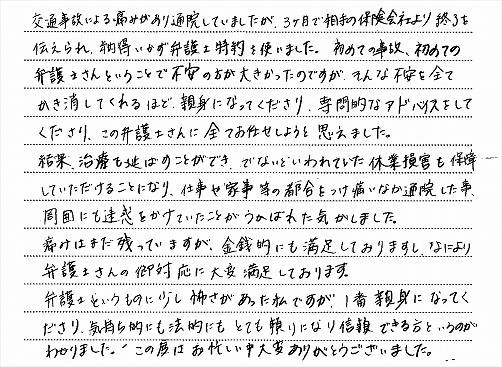 交通事故による痛みがあり通院していましたが、3ヶ月で相手の保険会社より終了を
伝えられ、納得いかず弁護士特約を使いました。初めての事故、初めての
弁護士さんということで不安の方が大きかったのですが、そんな不安を全て
かき消してくれるほど、親身になってくださり、専門的なアドバイスをして
くださり、この弁護士さんに全てお任せしようと思えました。
結果、治療も延ばすことができ、でないといわれていた休業損害も保障
していただけることになり、仕事や家事等の都合をつけ痛いなか通院した事、
周囲にも迷惑をかけていたことがうかばれた気がしました。
痛みはまだ残っていますが、金銭的にも満足しておりますし、なにより
弁護士さんの御対応に大変満足しております。
弁護士というものに少し怖さがあった私ですが、1番親身になってく
ださり、気持ち的にも法的にもとても頼りになり信頼できる方というのが
わかりました。この度はお忙しい中大変ありがとうございました。